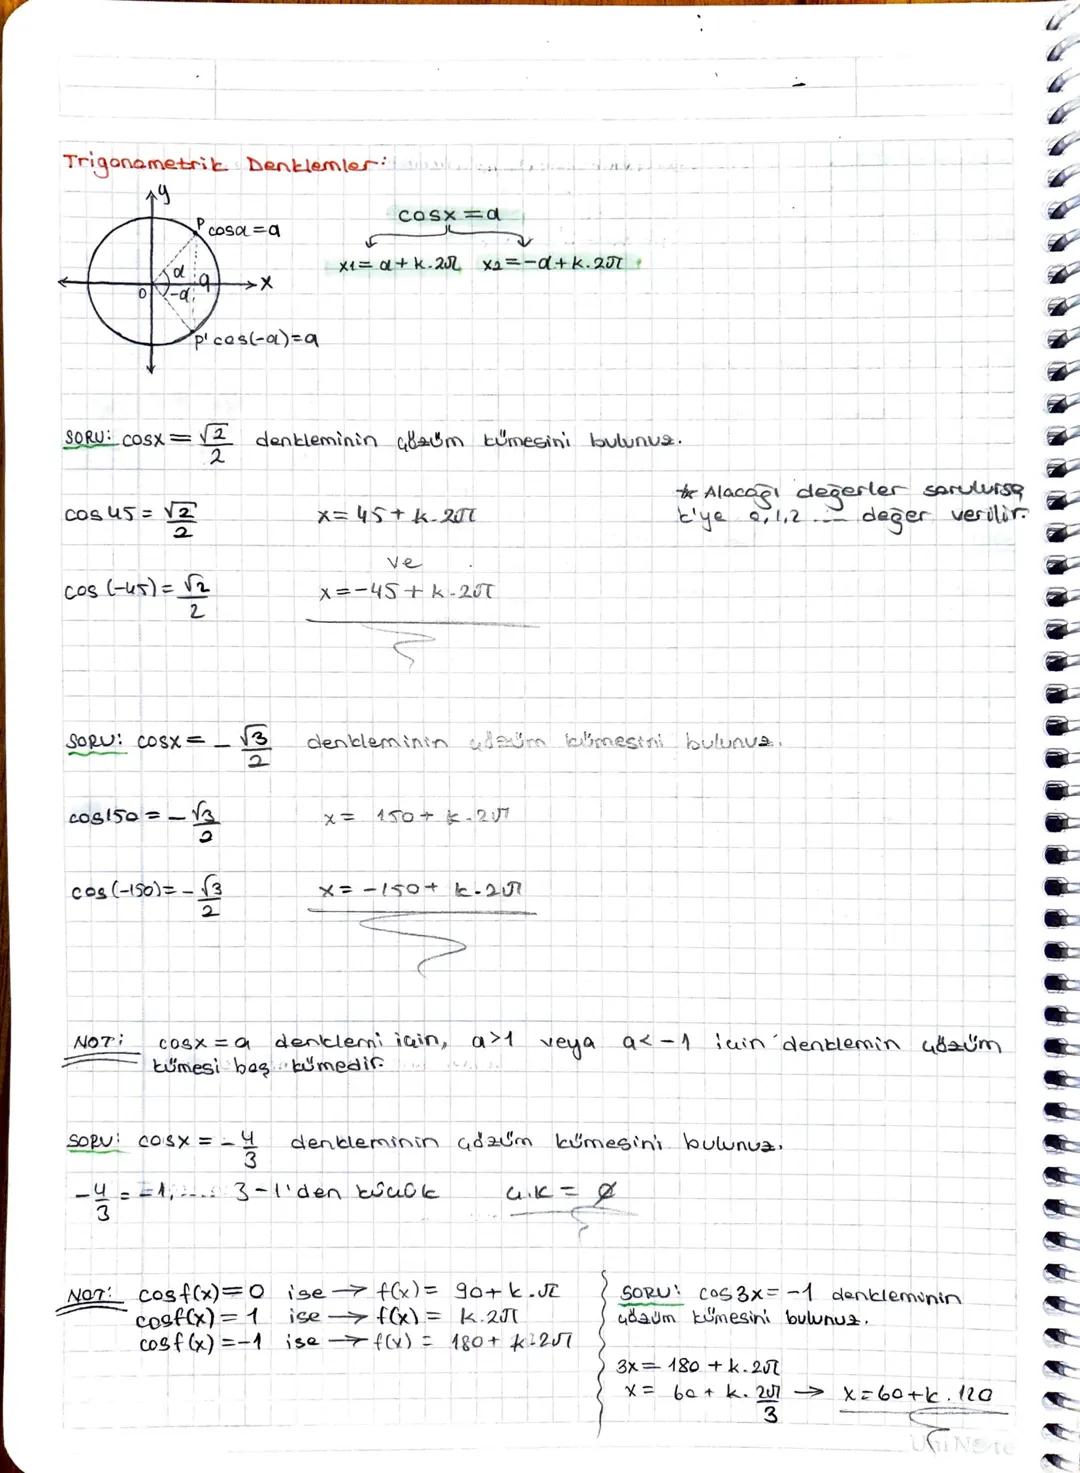 Trigonometrik Denklemler:
y
P cosα=a
cosx=a
x1=α+k.2π x2=-α+k.2π
α
a
x
0
-α
P' cos(-α)=a
SORU: cosx=√2/2 denkleminin çözüm kümesini bulunuz.
* Alacağı değerler sorulursa
k'ye 0,1,2 ... değer verilir.
cos 45=√2/2 x=45+k.2π
ve
cos(-45)=√2/2 x=-45+k.2π
SORU: cosx=-√3/2 denkleminin çözüm kümesini bulunuz.
cos150=-√3/2 x= 150+ k.2π
cos(-150)=-√3/2 x=-150+ k.2π
NOT: cosx=a denklemi için, a>1 veya a<-1 için denklemin çözüm
kümesi boş kümedir.
SORU: cosx=-4/3 denkleminin çözüm kümesini bulunuz.
-4/3=-1,.... 3-1'den küçük Ç.K=∅
NOT: cosf(x)=0 ise → f(x)= 90+k.π
cosf(x)=1 ise → f(x)= k.2π
cosf(x)=-1 ise → f(x)= 180+k.2π
SORU: cos3x=-1 denkleminin
çözüm kümesini bulunuz.
3x=180+k.2π
x= 60+k.2π/3 → x=60+k.120
UniNote